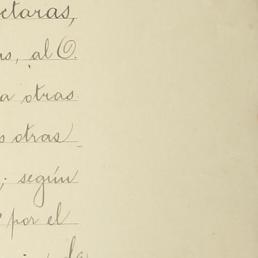 ctaras,
s, al O.
a otras
s otras
; según
por el
la